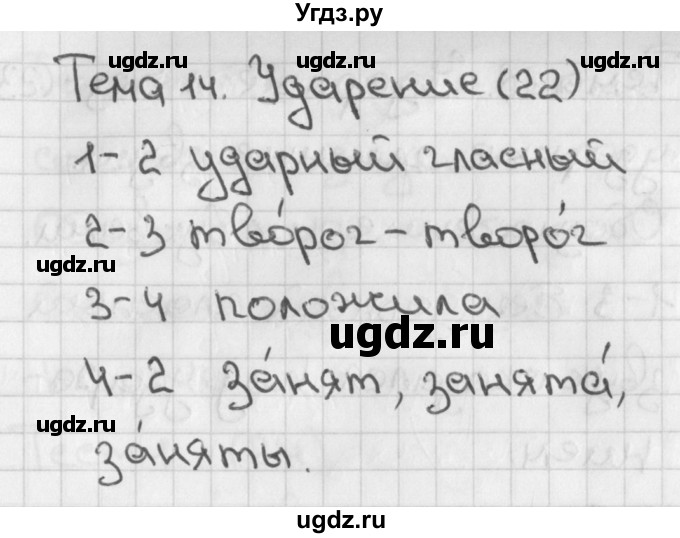 Угдз.ру
ugdz.ru ugdz.ru ugdz.ru
Тема 14. Ударение (22)
ugdz.ru ugdz.ru ugdz.ru
1-2 ударный гласный
2-3 тво́рог - творо́г
ugdz.ru
3-4 положила
ugdz.ru
4-2 за́нят, занята́,
ugdz.ru
за́няты.
ugdz.ru